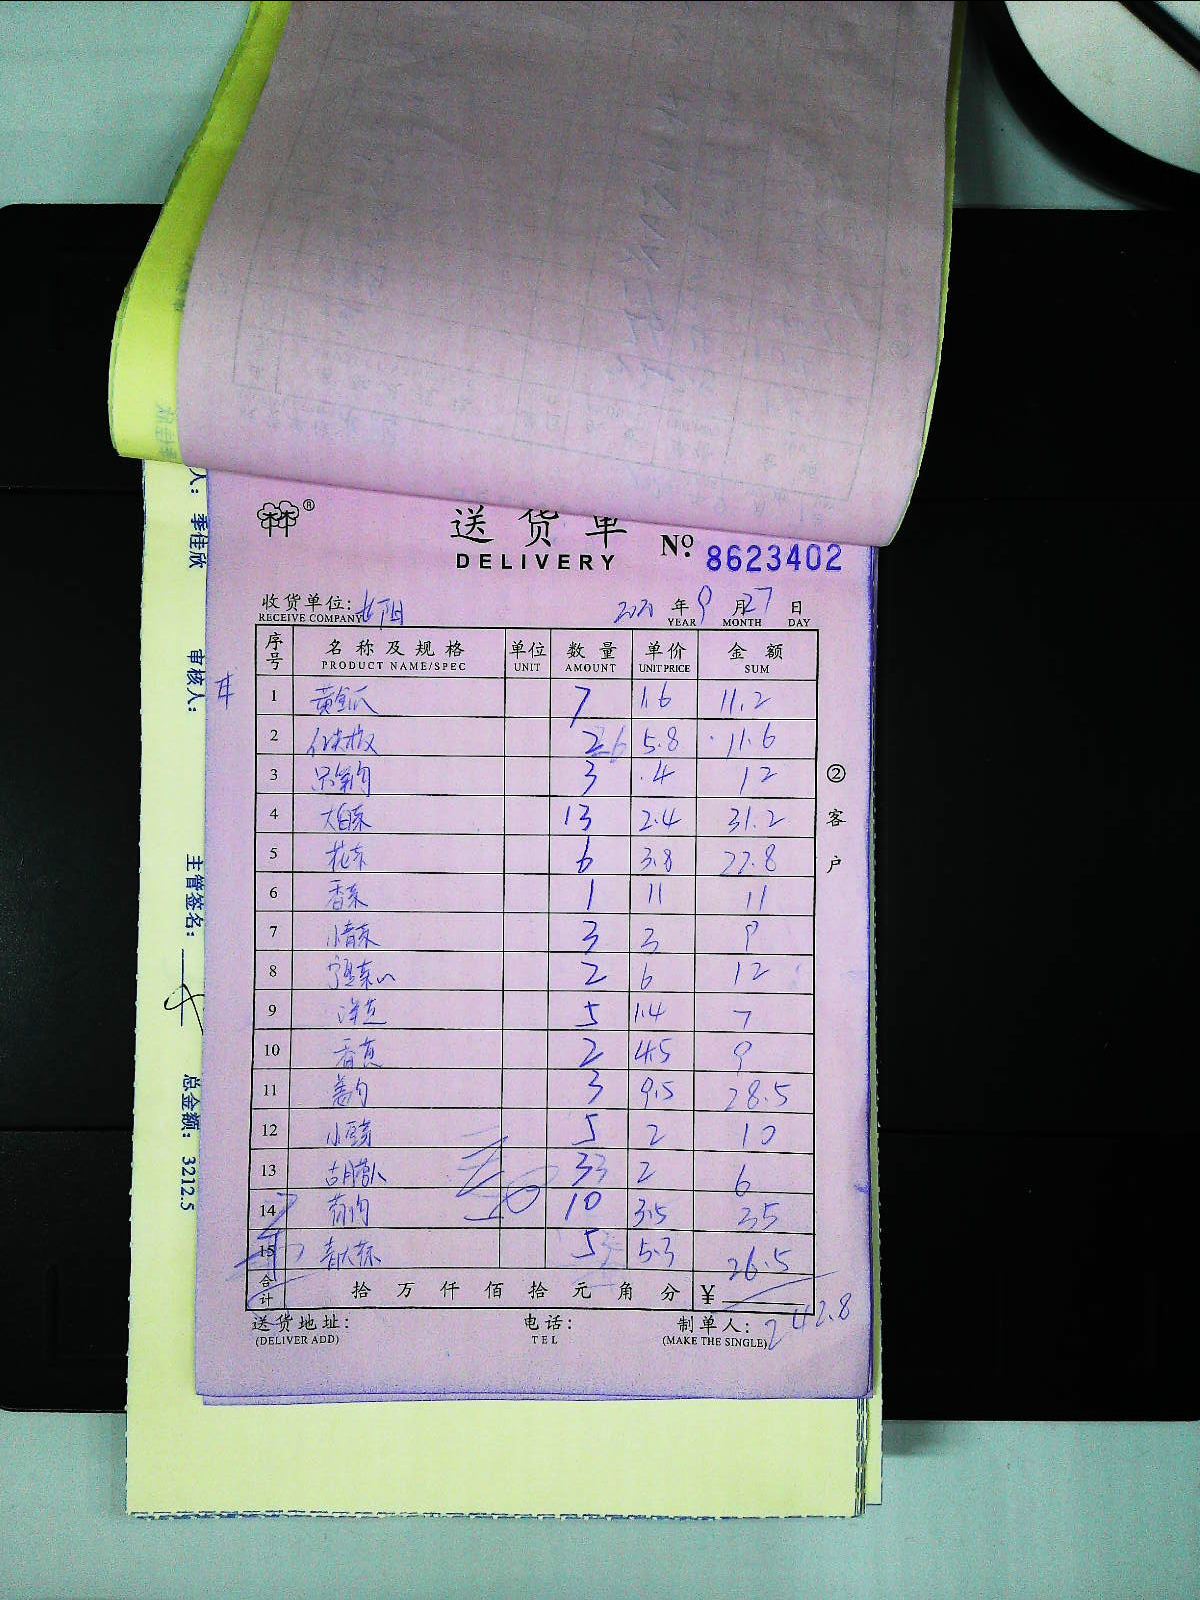 送货单
DELIVERY
№ 8623402
收货单位:
RECEIVE COMPANY
2020 年 9 月 27 日
YEAR MONTH DAY
序号 名称及规格 单位 数量 单价 金额
PRODUCT NAME/SPEC UNIT AMOUNT UNIT PRICE SUM
1 黄金瓜 7 1.6 11.2
2 2 5.8 11.6
3 3 4 12
4 大白菜 13 2.4 31.2
5 花菜 6 3.8 22.8
6 香菜 1 11 11
7 小青菜 3 3 9
8 2 6 12
9 洋芋 5 1.4 7
10 香蕉 2 4.5 9
11 3 9.5 28.5
12 5 2 10
13 胡萝卜 3 2 6
14 10 3.5 35
15 5 5.3 26.5
合计 拾 万 仟 佰 拾 元 角 分 ¥
242.8
送货地址: 电话: 制单人:
(DELIVER ADD) TEL (MAKE THE SINGLE)
②客户
人: 季佳欣
审核人:
主管签名:
总金额: 3212.5